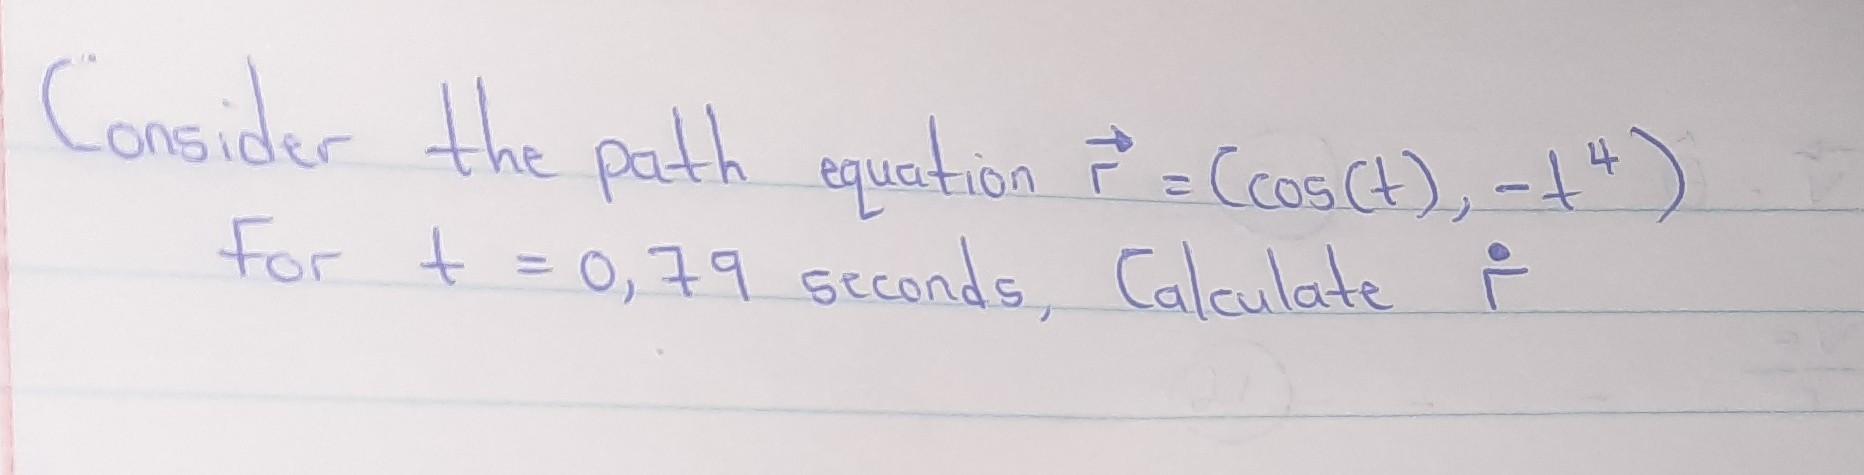 Consider the path equation r⃗ = (cos(t), -t⁴)
For t = 0,79 seconds, Calculate ṙ